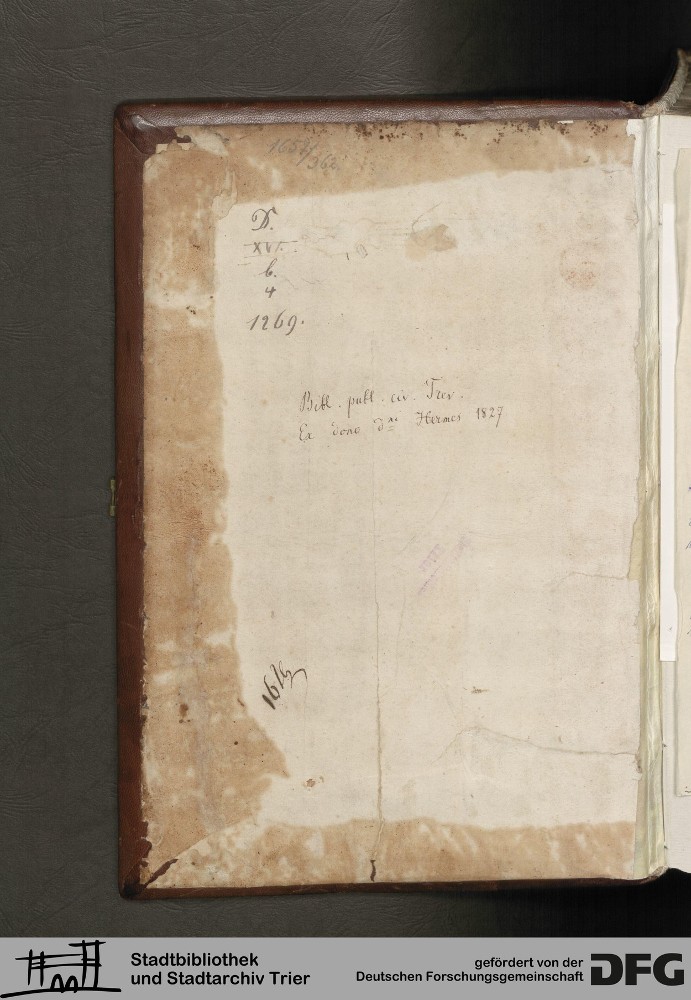 D.
XVI.
b.
4
1269.
Bibl. publ. civ. Trev.
Ex dono dni Hermes 1827
Stadtbibliothek
und Stadtarchiv Trier
gefördert von der
Deutschen Forschungsgemeinschaft
DFG